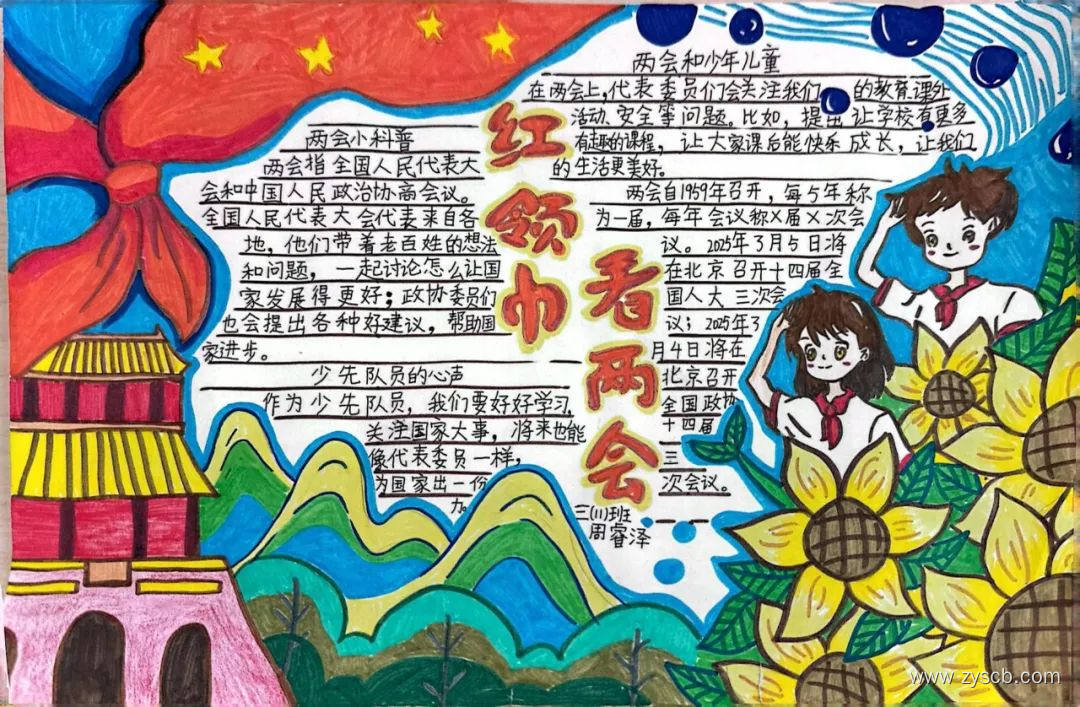 红领巾
看两会
两会小科普
两会指全国人民代表大
会和中国人民政治协商会议。
全国人民代表大会代表来自各
地，他们带着老百姓的想法
和问题，一起讨论怎么让国
家发展得更好；政协委员们
也会提出各种好建议，帮助国
家进步。
少先队员的心声
作为少先队员，我们要好好学习，
关注国家大事，将来也能
像代表委员一样，
为国家出一份
力。
两会和少年儿童
在两会上，代表委员们会关注我们 的教育、课外
活动、安全等问题。比如，提出让学校有更多
有趣的课程，让大家课后能快乐成长，让我们
的生活更美好。
两会自1959年召开，每5年称
为一届，每年会议称X届X次会
议。2025年3月5日将
在北京召开十四届全
国人大三次会
议；2025年3
月4日将在
北京召开
全国政协
十四届
三
次会议。
三(1)班
周睿泽
www.zyscb.com